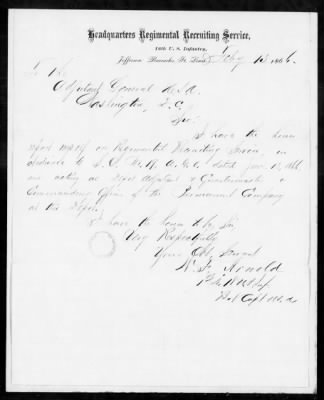 Headquarters Regimental Recruiting Service,
14th U. S. Infantry,
Jefferson Barracks, St. Louis, Feby 13 1866.
To The
Adjutant General U.S.A.
Washington, D.C.
Sir:
I have the honor
report myself on Regimental Recruiting Service, in
obedience to S.O. No. A.G.O. dated Jany 1866
and acting as Depot Adjutant & Quartermaster &
Commanding Officer of the Permanent Company
at this Depot.
I have the honor to be, Sir,
Very Respectfully
Your Obt. Servant
W. F. Arnold
1st Lt.
Bvt Capt U.S.A.